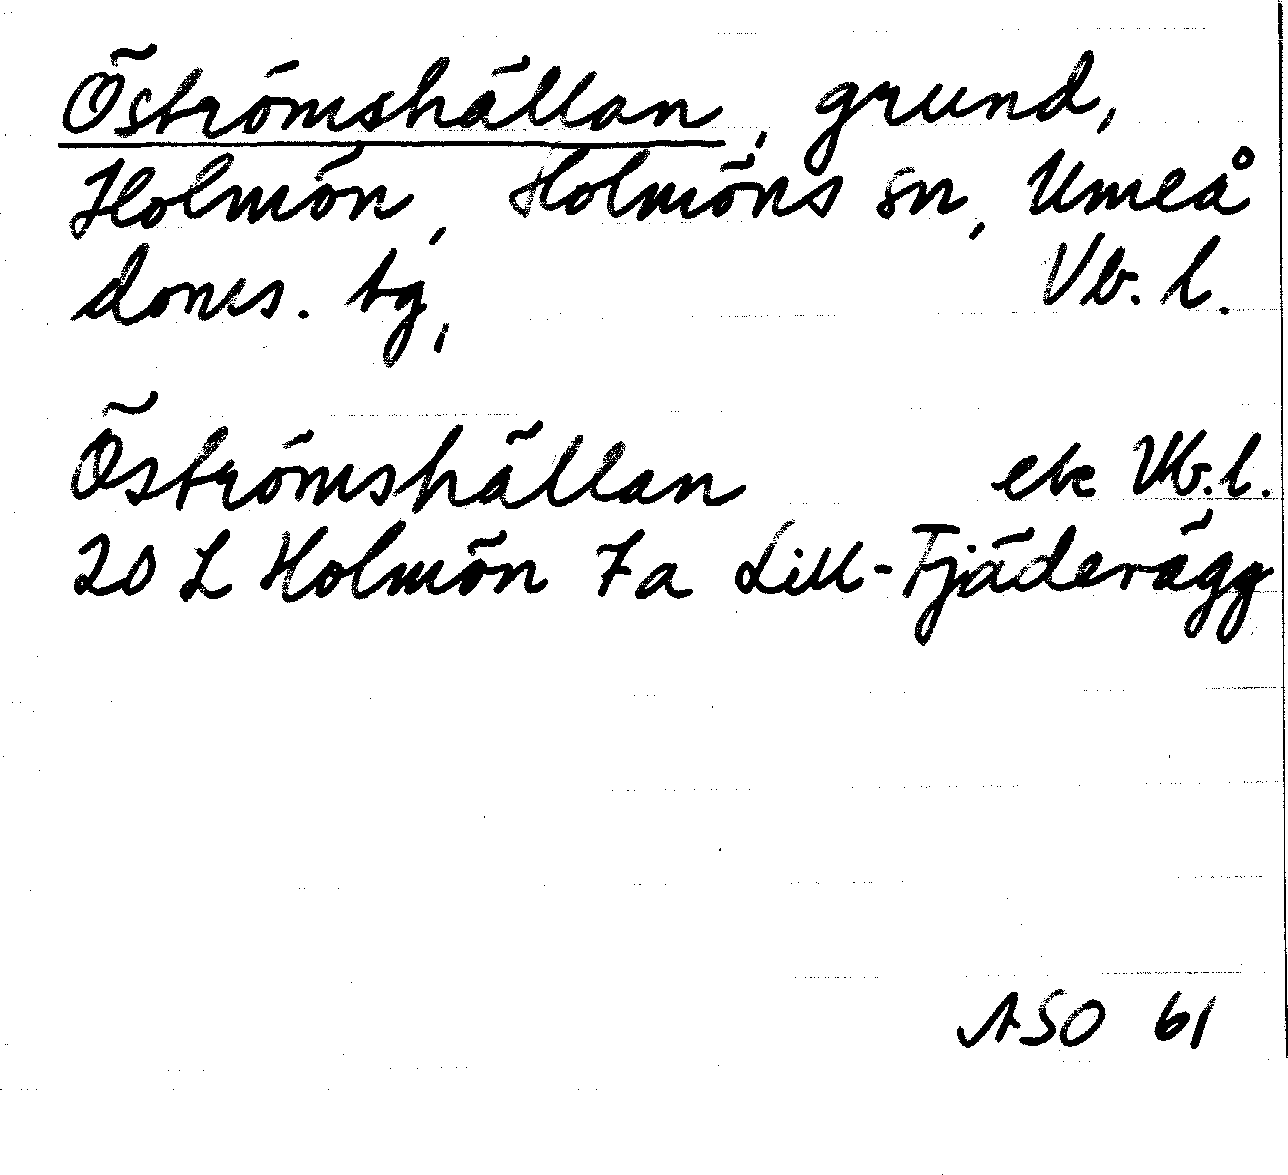 Öströmshällan, grund,
Holmön, Holmöns sn, Umeå
doms. tg, Vb. l.
Öströmshällan ek Vb. l.
20 L Holmön 7a Lill-Fjäderägg
ASO 61